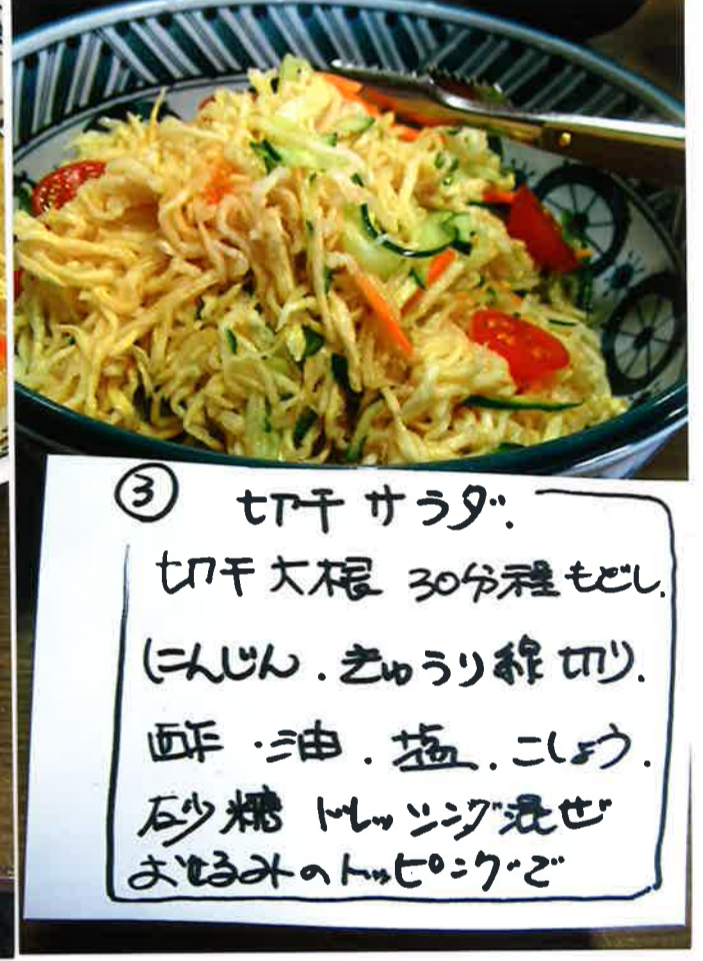 ③ 切干サラダ.
切干大根 30分程もどし.
にんじん.きゅうり線切り.
酢・油.塩.こしょう.
砂糖 ドレッシング混ぜ
お好みのトッピングで